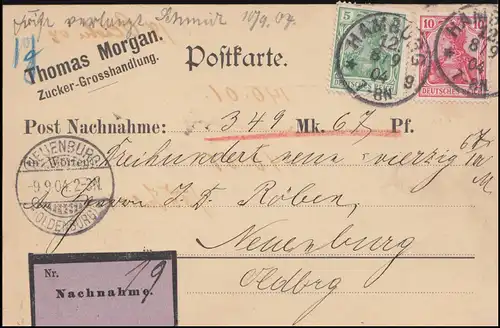 Frist verlangt Schmidt 10/9.04.
Thomas Morgan.
Zucker-Grosshandlung.
Postkarte.
5
10
HAMBURG
12
8/9
04
7-8N
9
HAMBURG
12
8/9
04
7-8N
DEUTSCHES
Post Nachnahme: 349 Mk. 67 Pf.
Dreihundert neun vierzig M
NEUENBURG
-9.9.04.2-3N.
(OLDENBURG)
Herrn J. D. Röben,
Neuenburg
Oldbrg
Nr. 19
Nachnahme.